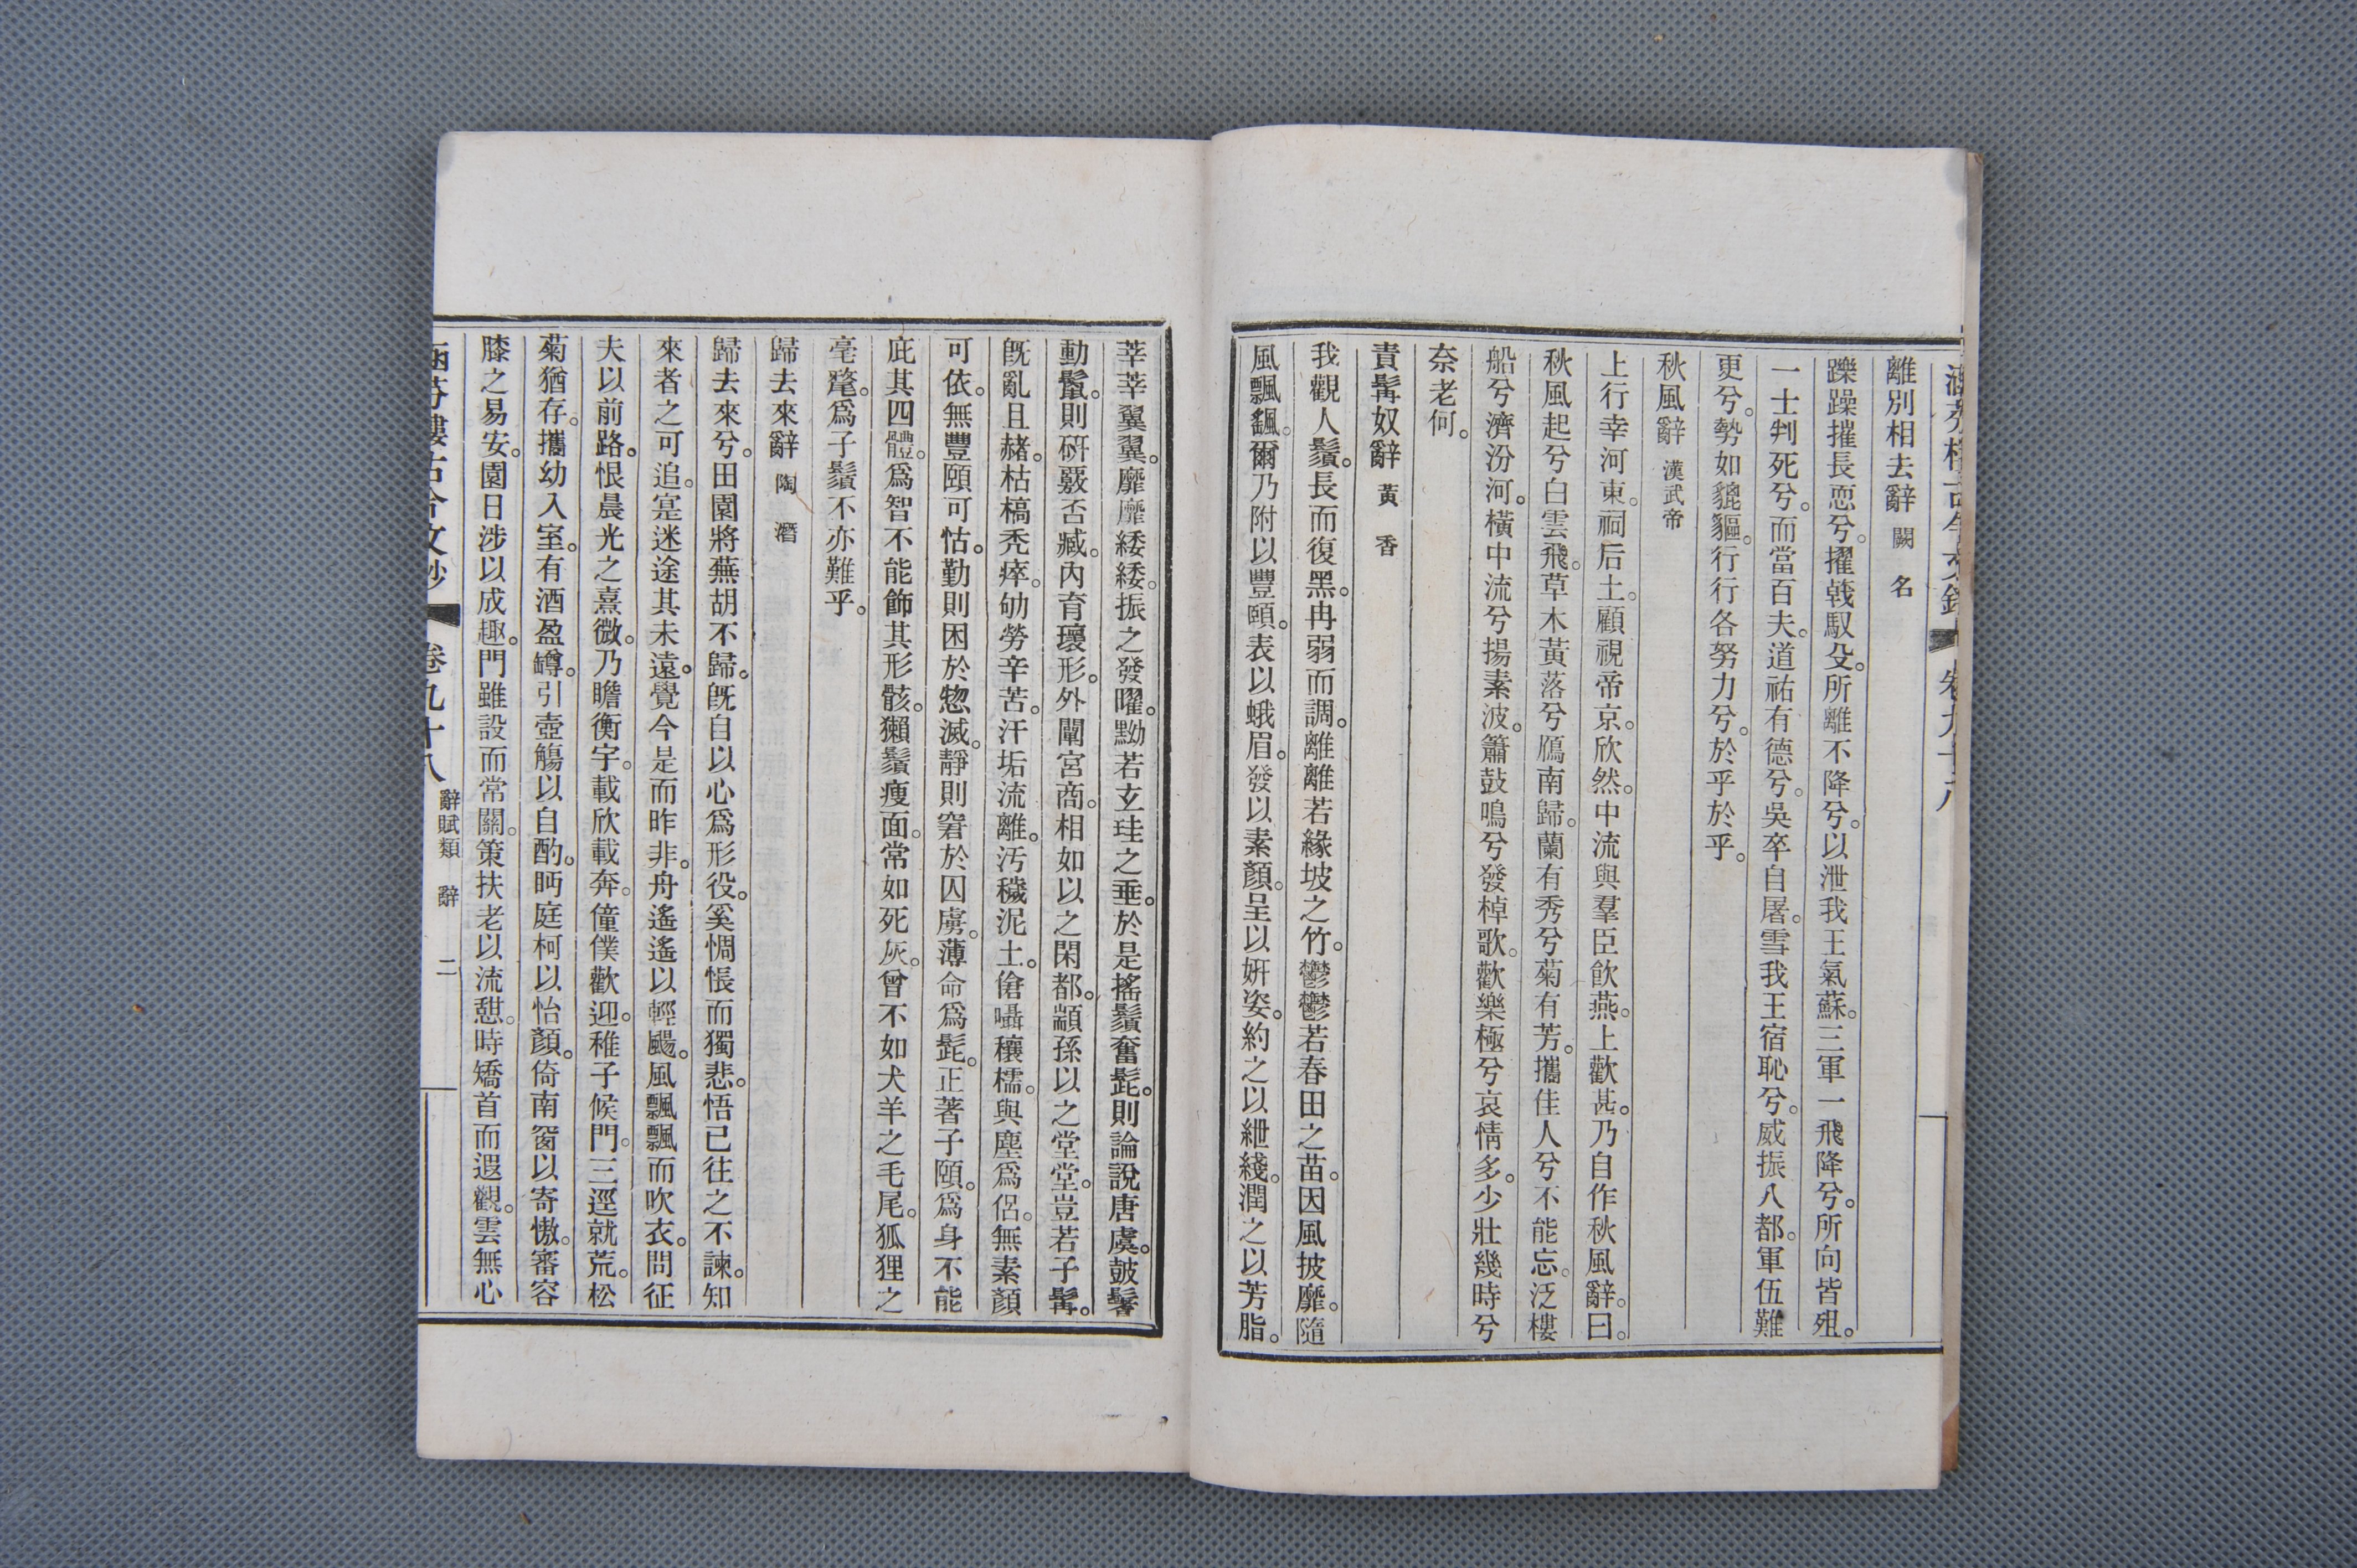 離別相去辭 闕名
躒躁摧長恧兮。擢戟馭殳。所離不降兮。以泄我王氣蘇。三軍一飛降兮。所向皆殂。
一士判死兮。而當百夫。道祐有德兮。吳卒自屠。雪我王宿恥兮。威振八都。軍伍難
更兮。勢如貔貙。行行各努力兮。於乎於乎。
秋風辭 漢武帝
上行幸河東。祠后土。顧視帝京。欣然。中流與羣臣飲燕。上歡甚。乃自作秋風辭。曰。
秋風起兮白雲飛。草木黃落兮鴈南歸。蘭有秀兮菊有芳。攜佳人兮不能忘。泛樓
船兮濟汾河。橫中流兮揚素波。簫鼓鳴兮發棹歌。歡樂極兮哀情多。少壯幾時兮
奈老何。
責髯奴辭 黃香
我觀人鬚。長而復黑。冉弱而調。離離若緣坡之竹。鬱鬱若春田之苗。因風披靡。隨
風飄颻。爾乃附以豐頤。表以蛾眉。發以素顏。呈以妍姿。約之以紲綫。潤之以芳脂。
莘莘翼翼。靡靡綏綏。振之發曜。黝若玄珪之垂。於是搖鬚奮髭。則論說唐虞。鼓鬐
動鬣。則研覈否臧。內育瓌形。外闡宮商。相如以之閑都。顓孫以之堂堂。豈若子髯。
既亂且赭。枯槁禿瘁。劬勞辛苦。汗垢流離。汚穢泥土。傖囁穰檽。與塵爲侶。無素顏
可依。無豐頤可怙。動則困於惣滅。靜則窘於囚虜。薄命爲髭。正著子頤。爲身不能
庇其四體。爲智不能飾其形骸。獺鬚瘦面。常如死灰。曾不如犬羊之毛尾。狐狸之
毫氂。爲子鬚不亦難乎。
歸去來辭 陶潛
歸去來兮。田園將蕪胡不歸。既自以心爲形役。奚惆悵而獨悲。悟已往之不諫。知
來者之可追。寔迷途其未遠。覺今是而昨非。舟遙遙以輕颺。風飄飄而吹衣。問征
夫以前路。恨晨光之熹微。乃瞻衡宇。載欣載奔。僮僕歡迎。稚子候門。三逕就荒。松
菊猶存。攜幼入室。有酒盈罇。引壺觴以自酌。眄庭柯以怡顏。倚南窗以寄傲。審容
膝之易安。園日涉以成趣。門雖設而常關。策扶老以流憩。時矯首而遐觀。雲無心
涵芬樓古今文鈔 卷九十八 辭賦類 辭 二